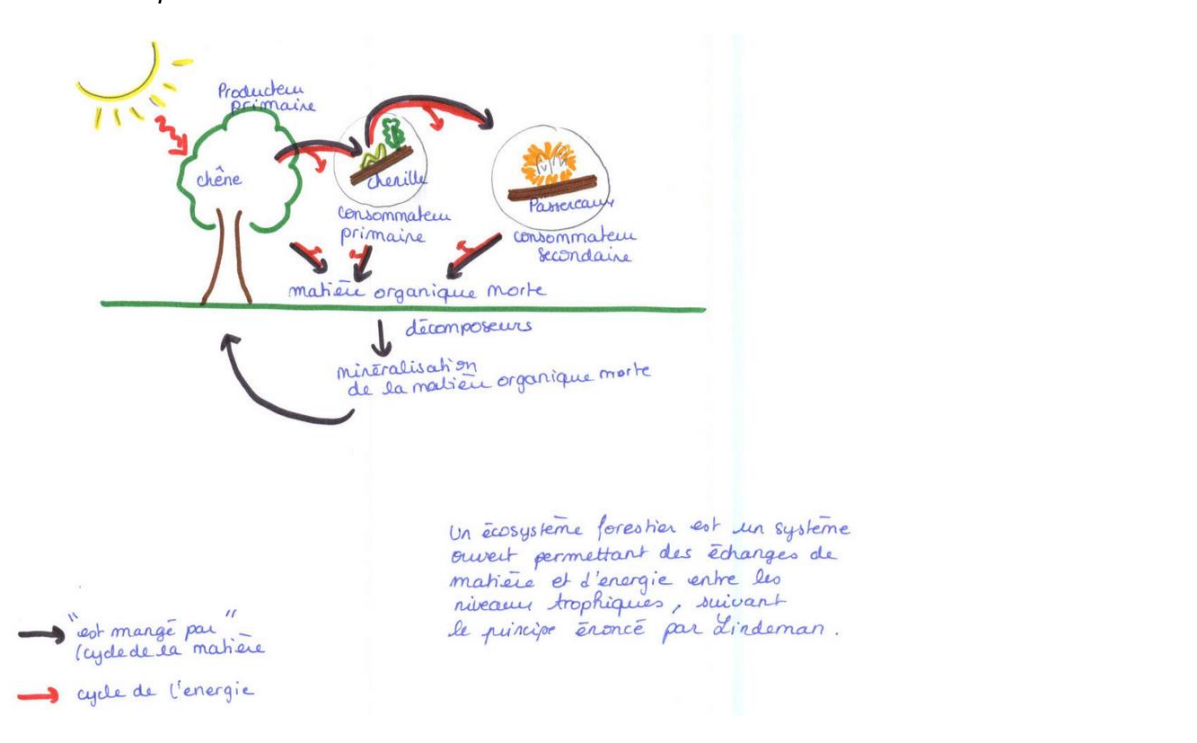 Producteur
primaire
chêne
chenille
Passereaux
consommateur
primaire
consommateur
secondaire
matière organique morte
décomposeurs
minéralisation
de la matière organique morte
Un écosystème forestier est un système
ouvert permettant des échanges de
matière et d'énergie entre les
niveaux trophiques, suivant
le principe énoncé par Lindeman.
"est mangé par"
(cycle de la matière
cycle de l'energie